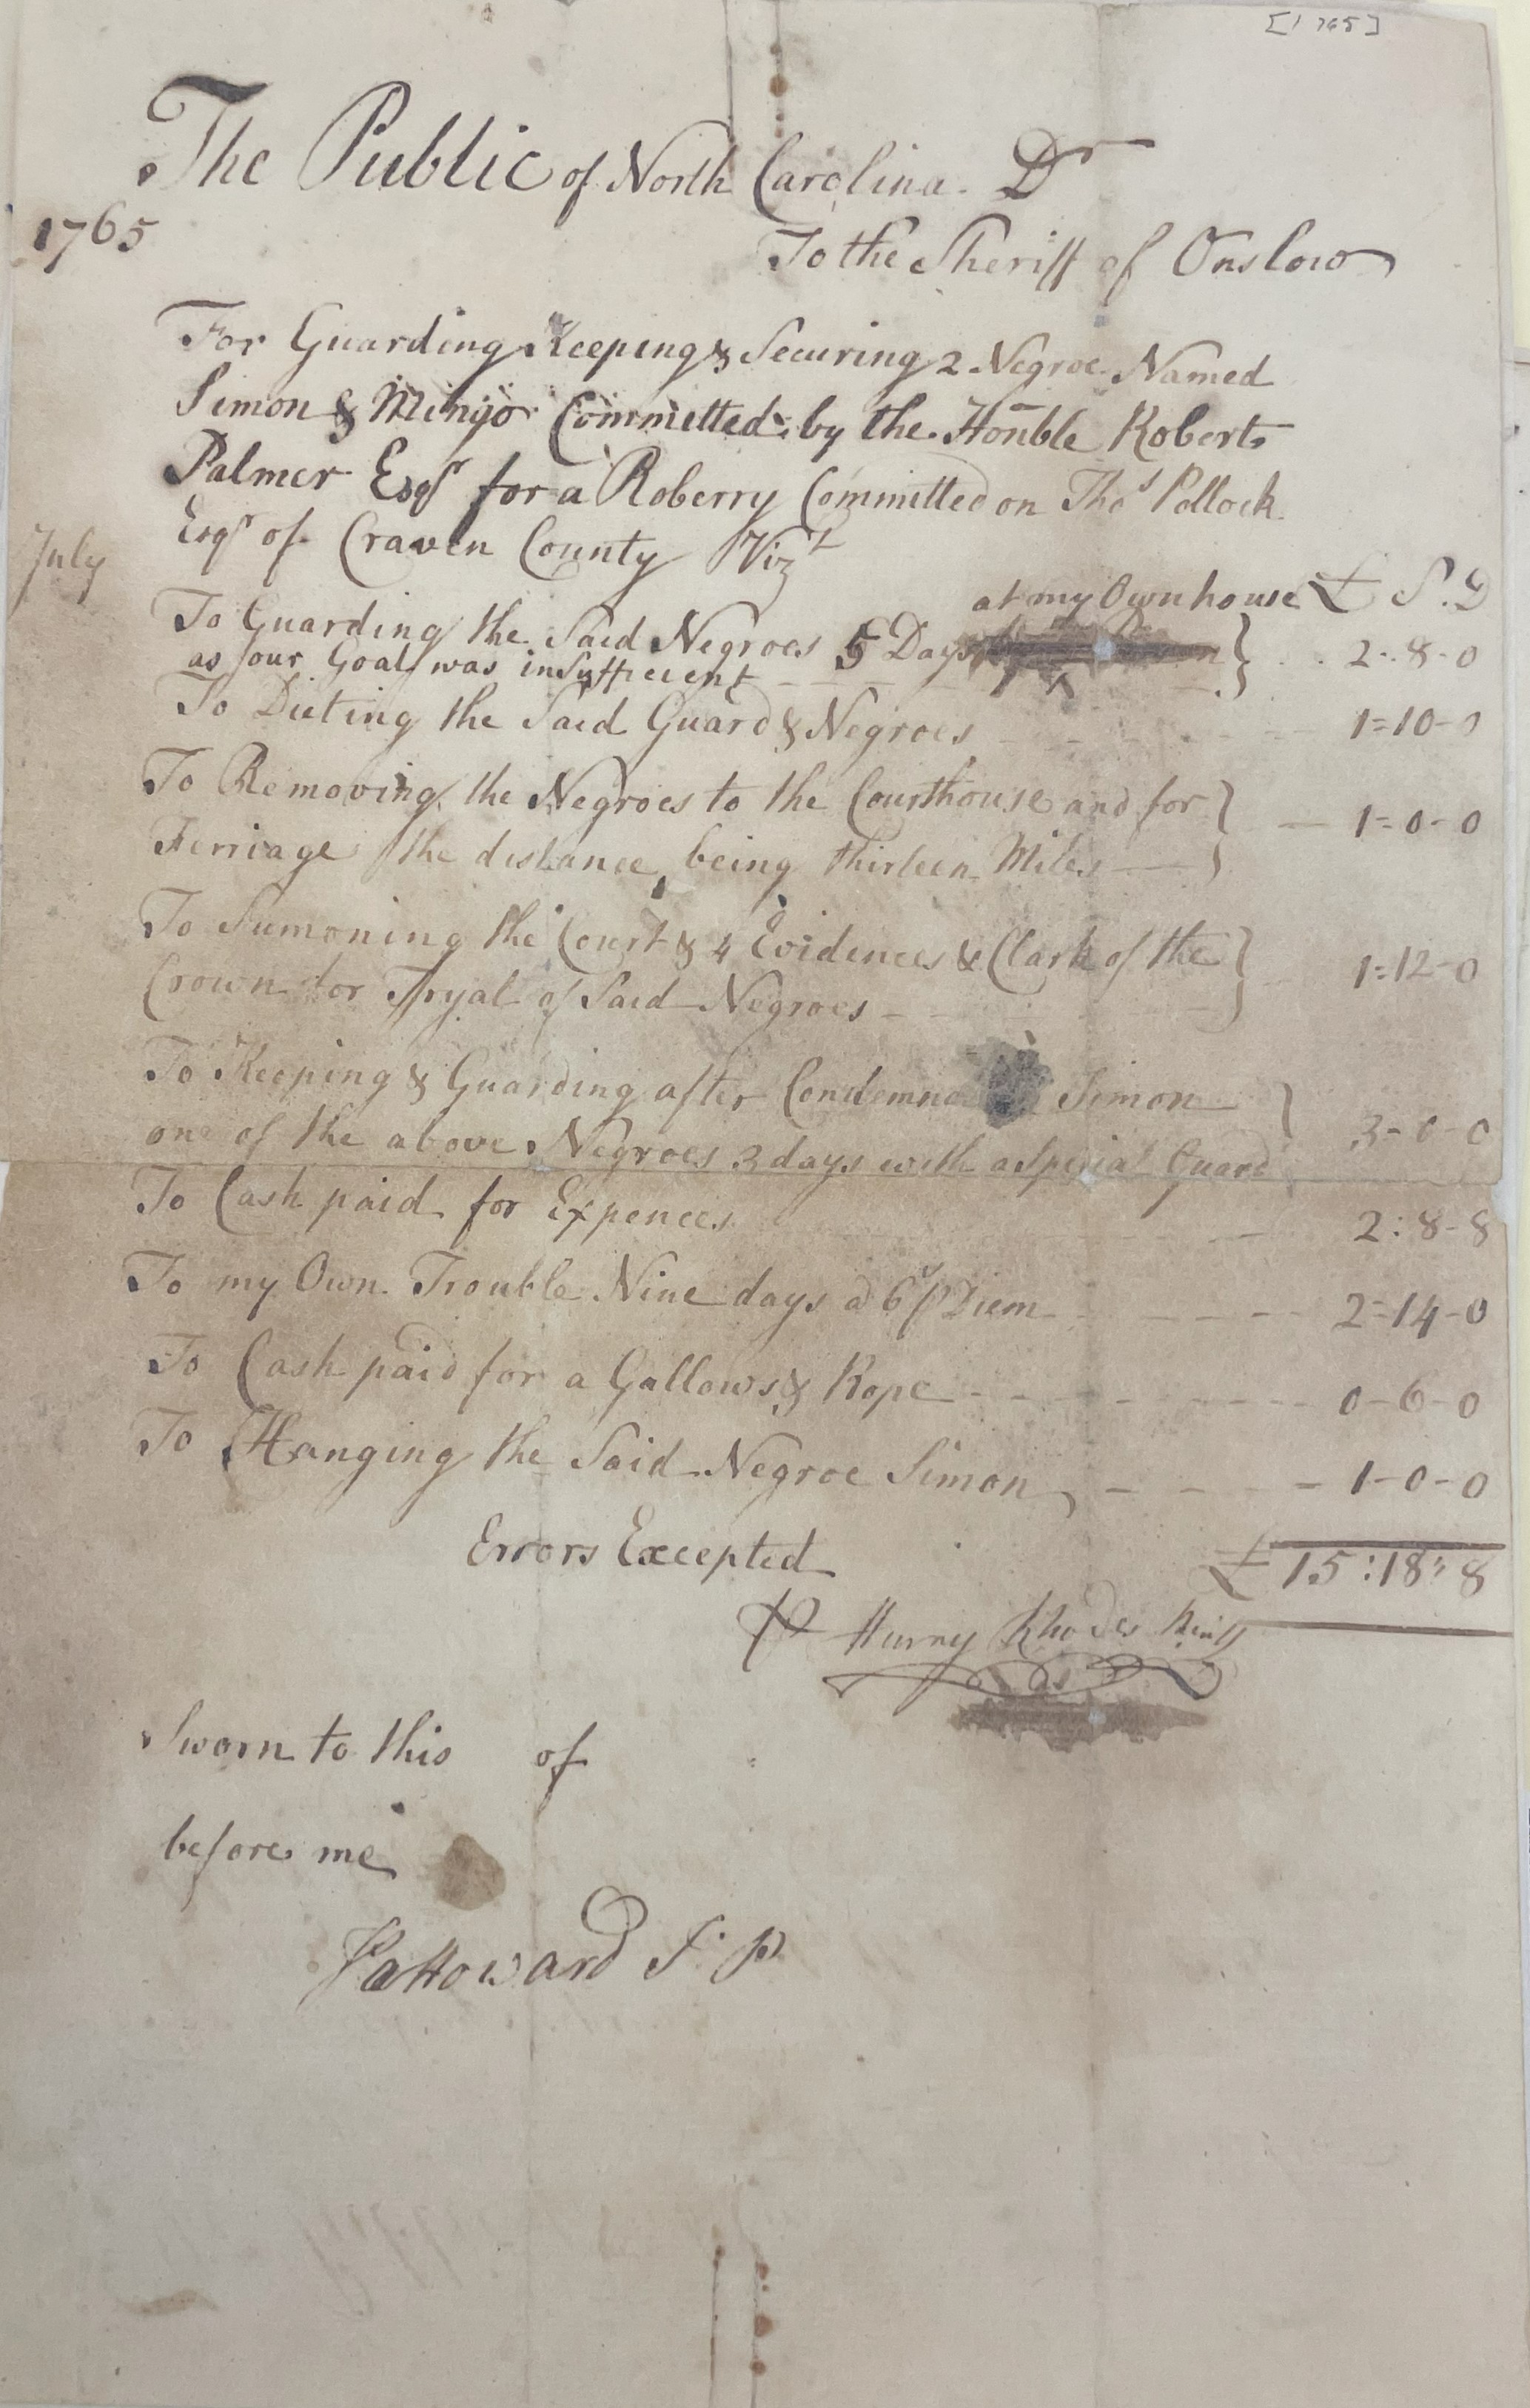 [1765]
The Public of North Carolina Dr
1765
To the Sheriff of Onslow
For Guarding Keeping & Securing 2 Negroe Named
Simon & Mingo Committed by the Honble Robert
Palmer Esqr for a Roberry Committed on Thos Pollock
Esqr of Craven County Vizt
July
at my Own house £ S. D
To Guarding the Said Negroes 5 Days 2-8-0
as our Goal was insufficient
To Dieting the Said Guard & Negroes 1=10-0
To Removing the Negroes to the Courthouse and for
Ferriage the distance being thirteen Miles 1=0-0
To Sumoning the Court & 4 Evidences & Clark of the
Crown for Tryal of Said Negroes 1=12-0
To Keeping & Guarding after Condemned Simon
one of the above Negroes 3 days with a Special Guard 3-0-0
To Cash paid for Expences 2:8-8
To my Own Trouble Nine days @ 6/ p Diem 2=14-0
To Cash paid for a Gallows & Rope 0-6-0
To Hanging the Said Negroe Simon 1-0-0
Errors Excepted
£15:18:8
P Henry Rhodes Sheriff
Sworn to this of
before me
Howard J. P